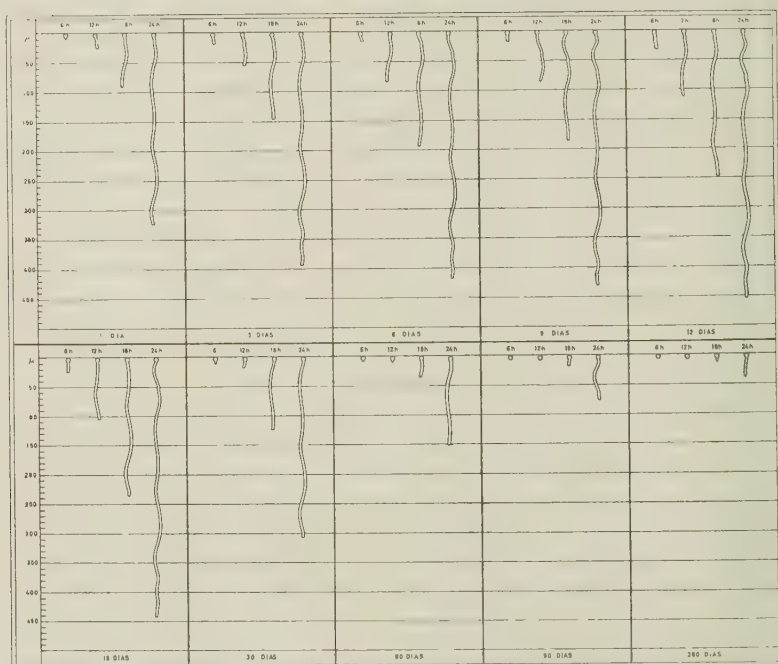 6h 12h 8h 24h 6h 12h 18h 24h 6h 12h 8h 24h 6h 12h 18h 24h 6h 2h 8h 24h
μ
50
100
150
200
250
300
350
400
450
1 DIA 3 DIAS 6 DIAS 9 DIAS 12 DIAS
0h 12h 18h 24h 6 12h 18h 24h 6h 12h 18h 24h 6h 12h 18h 24h 6h 12h 18h 24h
μ
50
00
150
200
250
300
350
400
450
15 DIAS 30 DIAS 60 DIAS 90 DIAS 360 DIAS